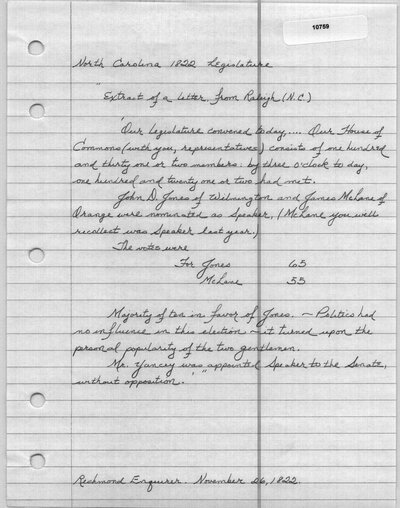 10759
North Carolina 1822 Legislature
"Extract of a letter from Raleigh (N.C.)
'Our Legislature convened today,.... Our House of
Commons (with you, representatives) consists of one hundred
and thirty one or two members: by three o'clock to day,
one hundred and twenty one or two had met.
John D. Jones of Wilmington and James McLane of
Orange were nominated as Speaker, (McLane you will
recollect was Speaker last year.)
The votes were
For Jones 65
McLane 55
Majority of ten in favor of Jones. ~ Politics had
no influence in this election ~ it turned upon the
personal popularity of the two gentlemen.
Mr. Yancey was appointed Speaker to the Senate,
without opposition.' "
Richmond Enquirer. November 26, 1822.